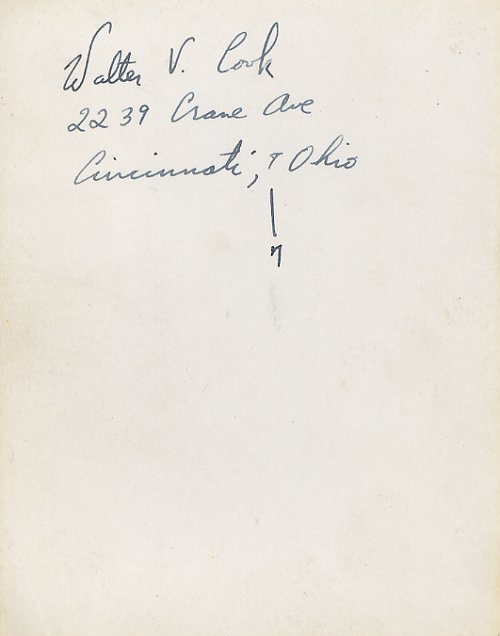 Walter V. Cook
2239 Crane Ave
Cincinnati, 7 Ohio
7